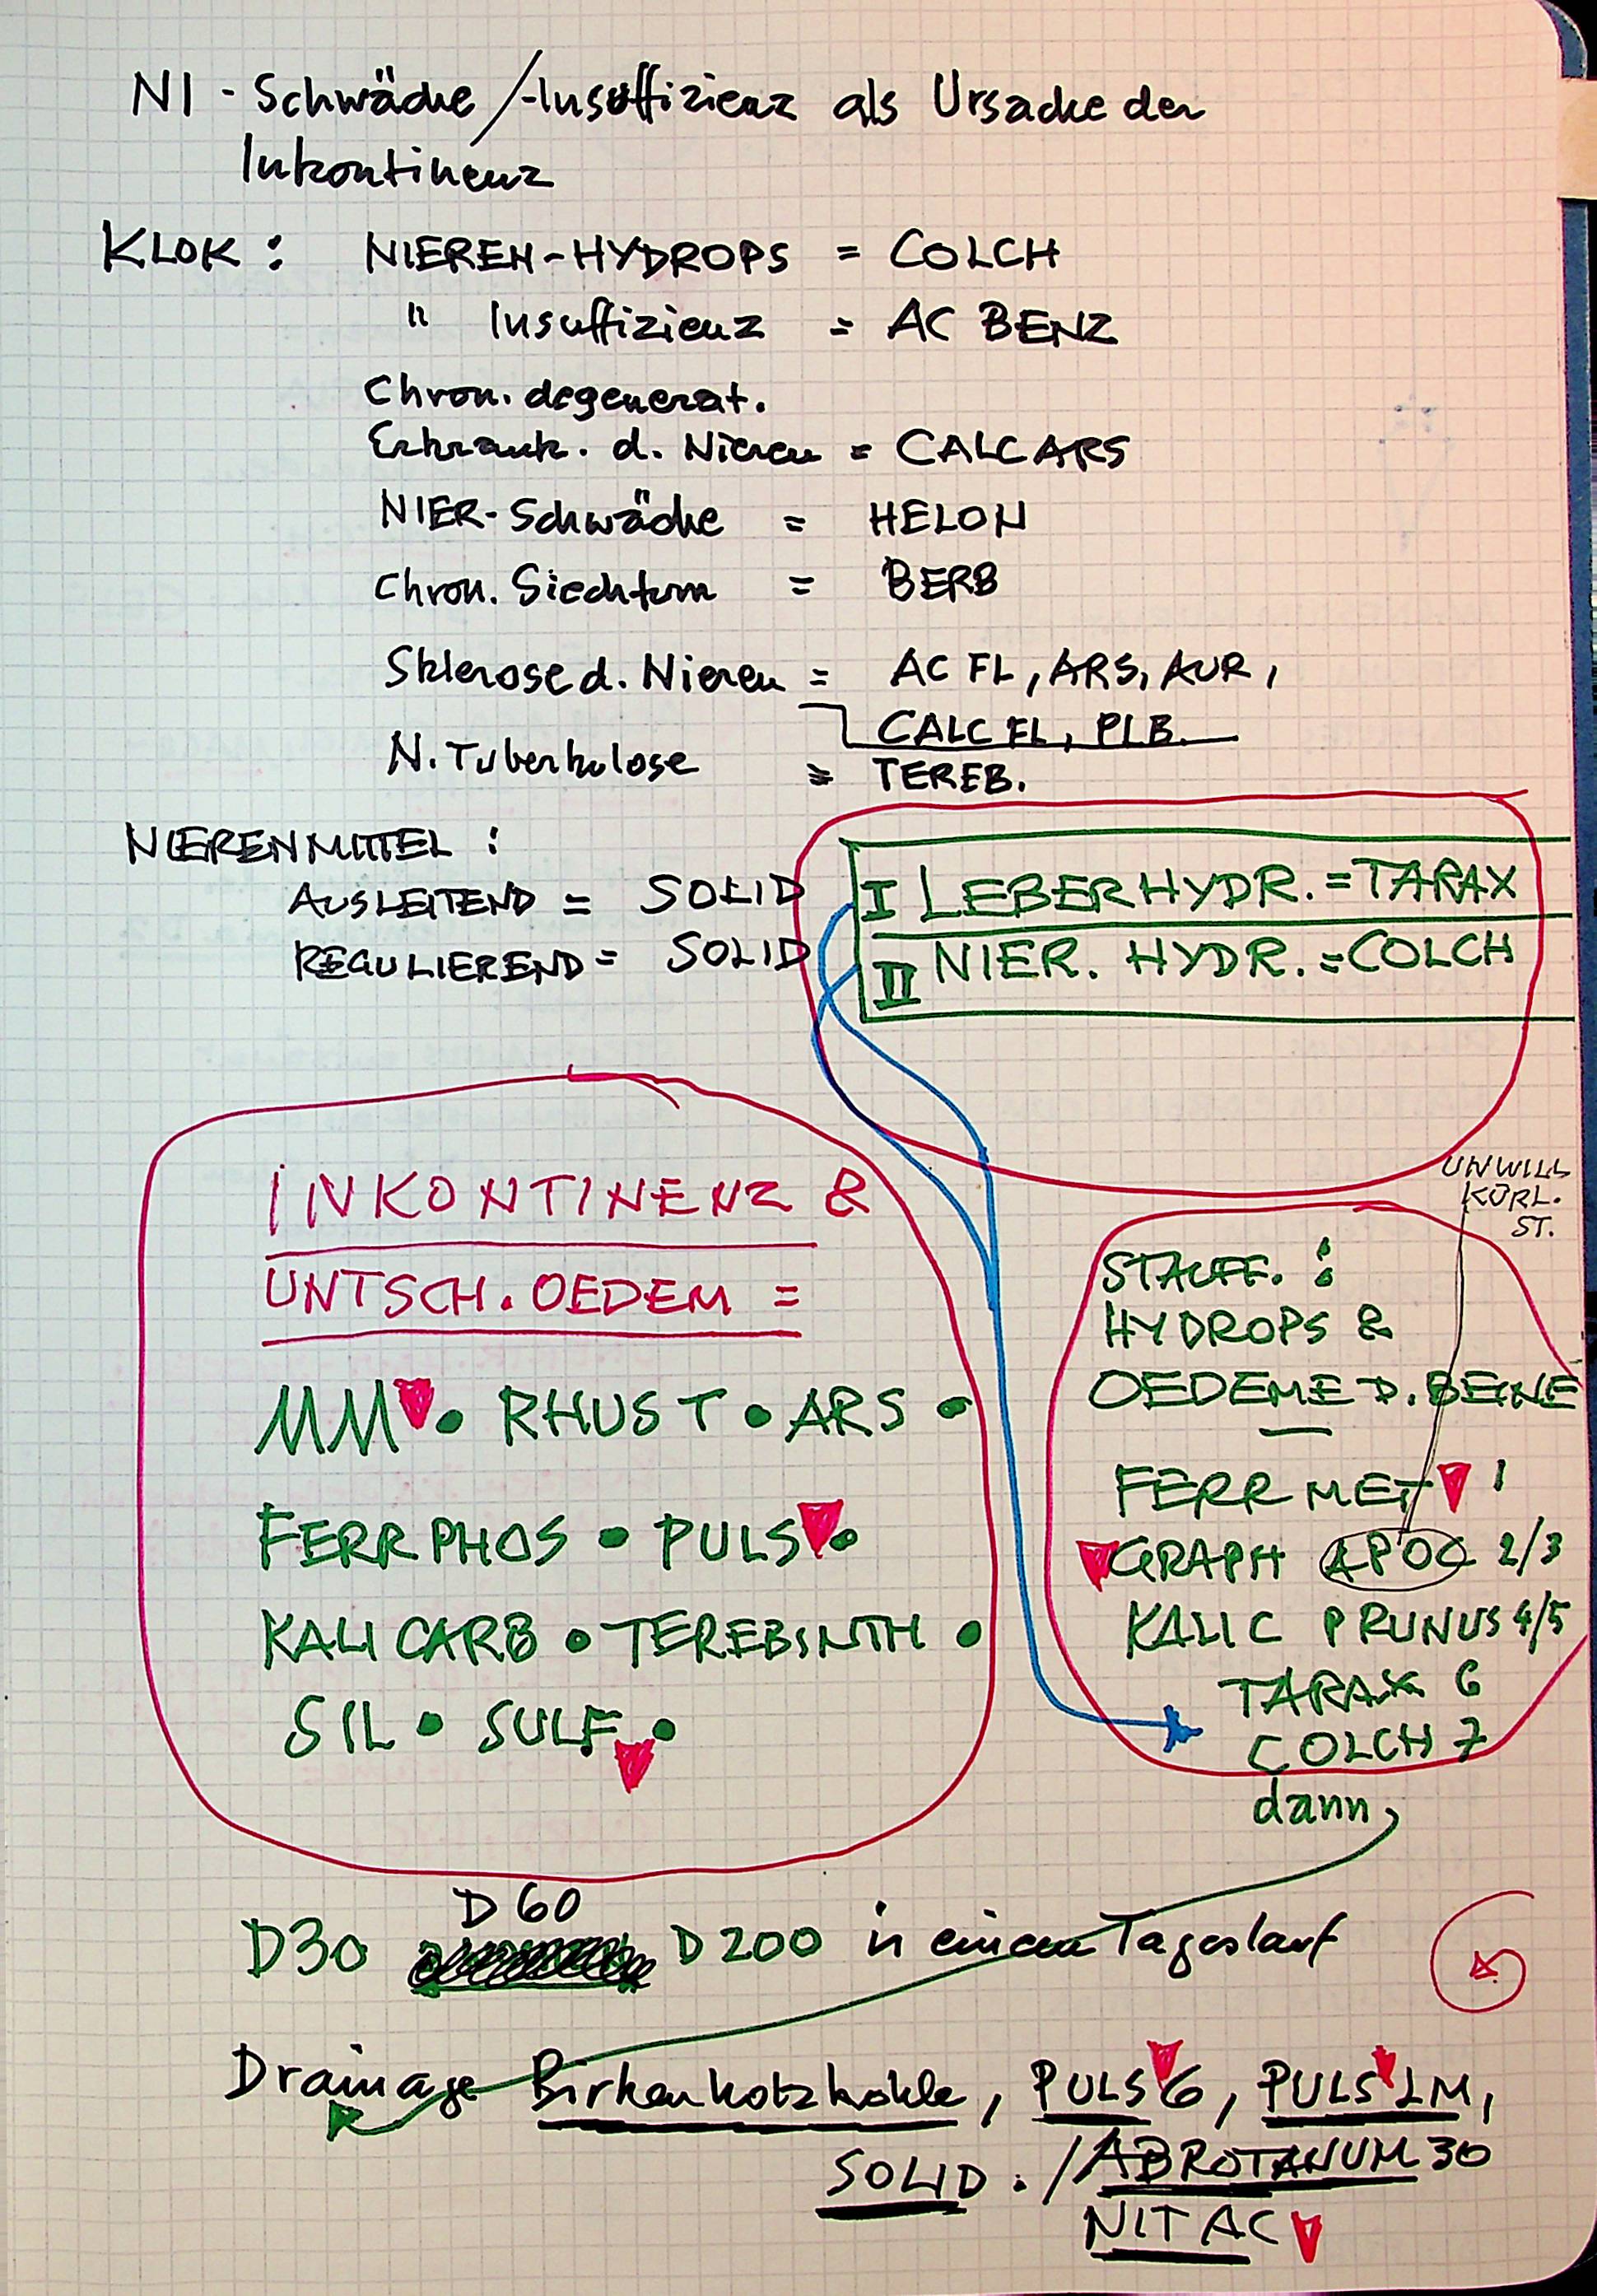 NI - Schwäche /-Insuffizienz als Ursache der
Inkontinenz
KLOK : NIEREN-HYDROPS = COLCH
" Insuffizienz = AC BENZ
Chron. degenerat.
Erkrank. d. Nieren = CALC ARS
NIER-Schwäche = HELON
Chron. Siechtum = BERB
Sklerose d. Nieren = AC FL, ARS, AUR,
CALC FL, PLB.
N. Tuberkulose = TEREB.
NIERENMITTEL :
AUSLEITEND = SOLID
REGULIEREND = SOLID
I LEBERHYDR. = TARAX
II NIER. HYDR. = COLCH
INKONTINENZ &
UNTSCH. OEDEM =
MM • RHUS T • ARS •
FERR PHOS • PULS •
KALI CARB • TEREBINTH •
SIL • SULF •
UNWILL
KÜRL.
ST.
STAUFF. :
HYDROPS &
OEDEME D. BEINE
—
FERR MET 1
GRAPH APOC 2/3
KALI C PRUNUS 4/5
TARAX 6
COLCH 7
dann
D 60
D30 D200 in einem Tageslauf
Drainage Birkenholzkohle, PULS 6, PULS LM,
SOLID . / ABROTANUM 30
NIT AC